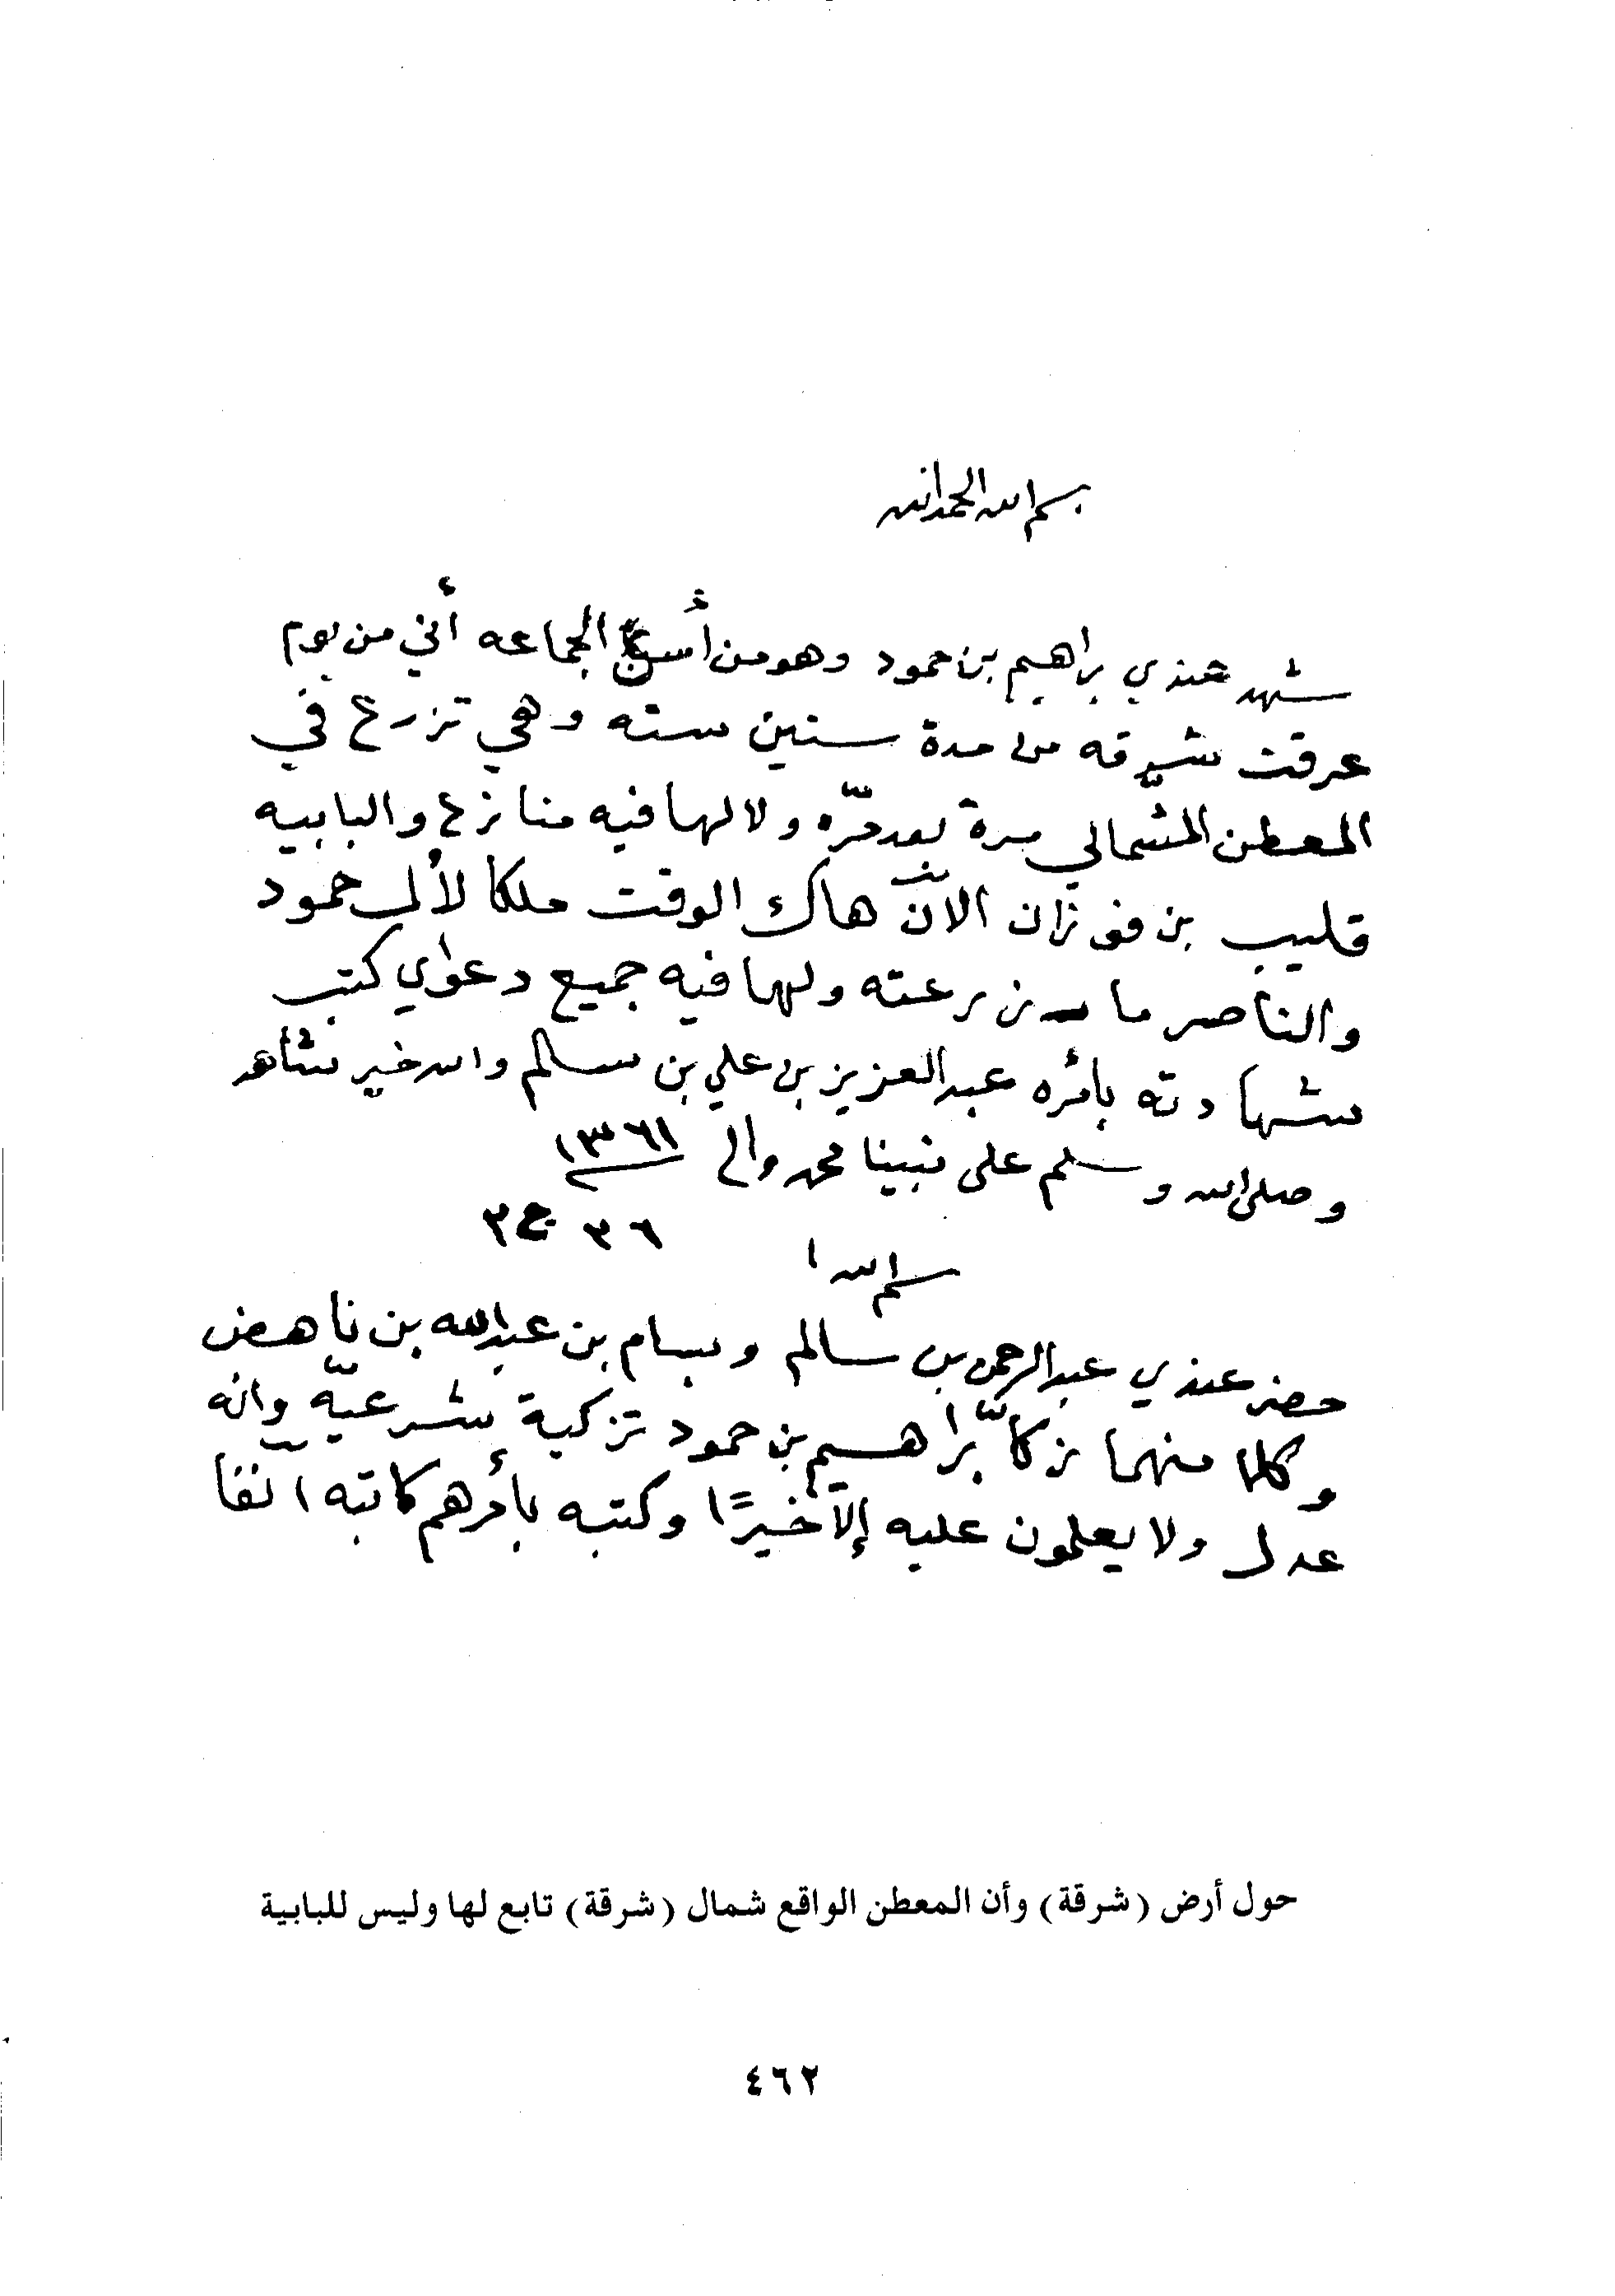 بسم الله الرحمن
شهد عندي براهيم بن حمود وهو من أسنّ الجماعه أني من يوم
عرفت شرقه من مدة ستين سنه وهي تزرع في
المعطن الشمالي مرة بعد مرّه ولا لها فيه منازع والبابيه
قليب بن فوزان الآن هاك الوقت ملكا لأل حمود
والناصر ما زرعته ولها فيه جميع دعواي كتب
شهادته بأمره عبد العزيز بن علي بن سالم والله خير شاهد
وصلى الله وسلم على نبينا محمد والـ ١٣٦١
٢٦ ج٢
بسم الله ا
حضر عندي عبد الرحمن بن سالم وبسام بن عبد الله بن ناهض
وكلا منهما زكّا براهيم بن حمود تزكية شرعيّه وانه
عدل ولا يعلمون عليه إلا خيرًا وكتبه بأمرهم كاتبه آنفا
حول أرض (شرقة) وأن المعطن الواقع شمال (شرقة) تابع لها وليس للبابية
٤٦٢